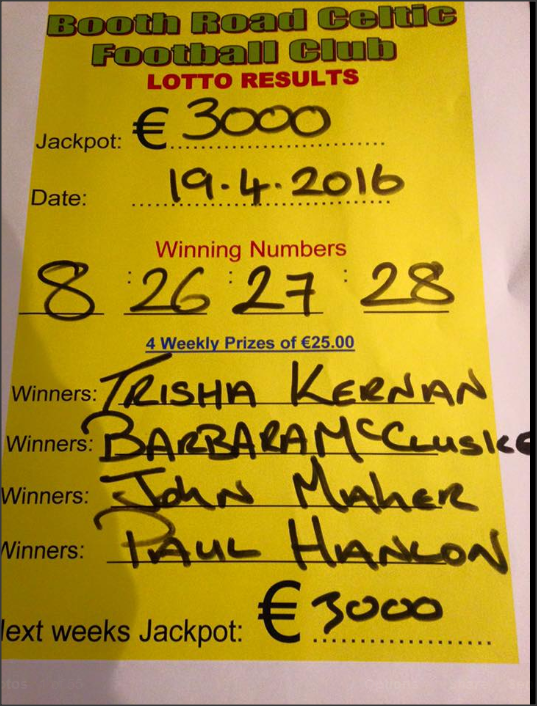 Booth Road Celtic
Football Club
LOTTO RESULTS
Jackpot: € 3000
Date: 19.4.2016
Winning Numbers
8 : 26 : 27 : 28
4 Weekly Prizes of €25.00
Winners: TRISHA KERNAN
Winners: BARBARA McCLUSKE
Winners: John Maher
Winners: PAUL HANLON
Next weeks Jackpot: € 3000